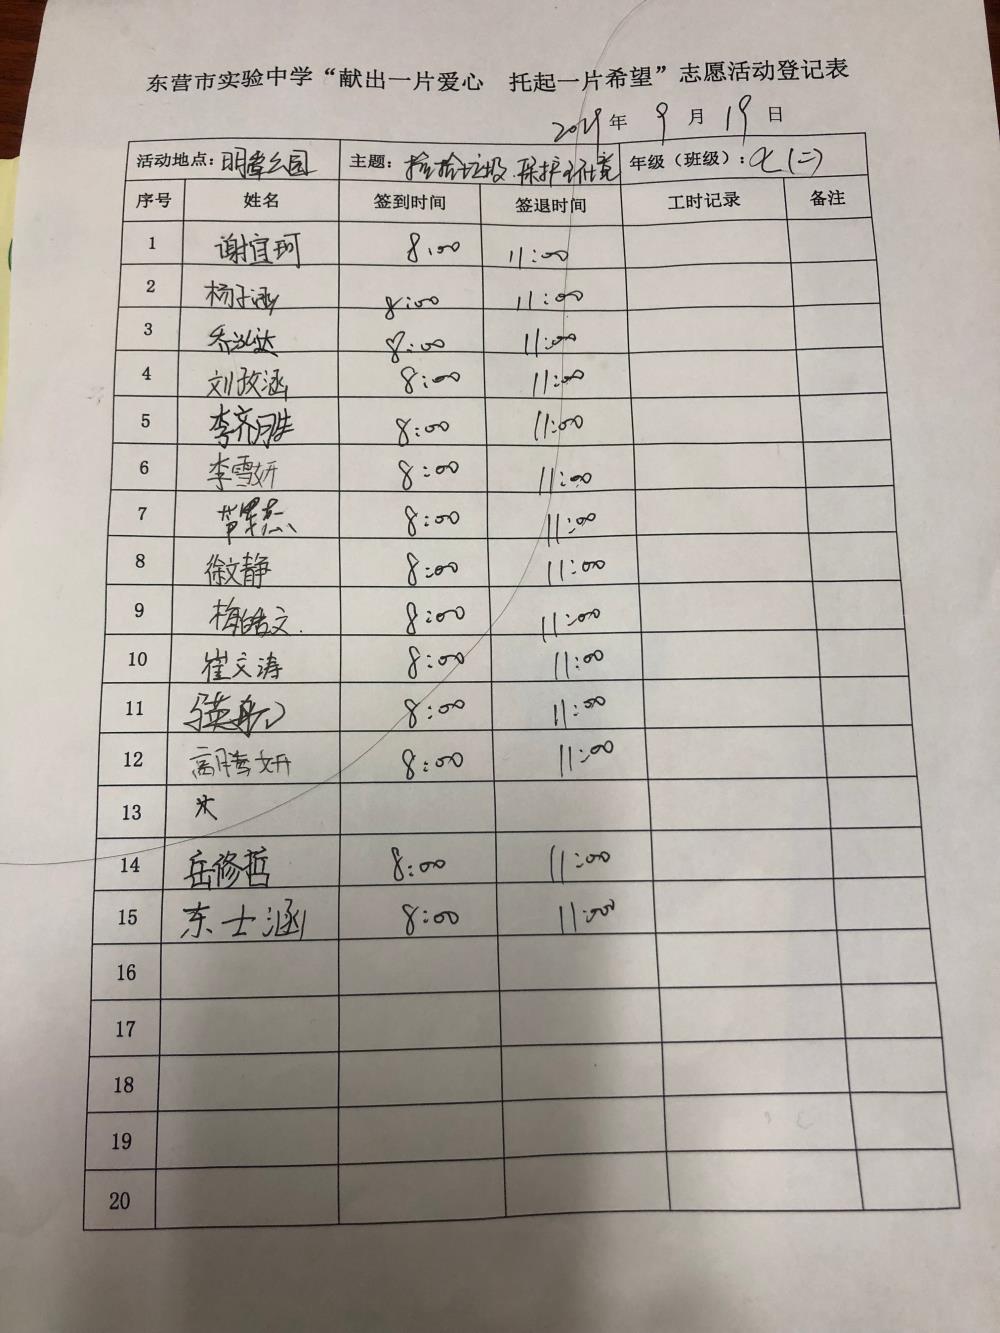 东营市实验中学“献出一片爱心 托起一片希望”志愿活动登记表
2019年 9月 19日
活动地点：明潭公园 主题：捡拾垃圾.保护环境 年级（班级）：七（二）
序号 姓名 签到时间 签退时间 工时记录 备注
1 谢宜珂 8:00 11:00
2 杨子涵 8:00 11:00
3 乔泓达 8:00 11:00
4 刘政涵 8:00 11:00
5 李齐胜 8:00 11:00
6 李雪妍 8:00 11:00
7 8:00 11:00
8 徐文静 8:00 11:00
9 梅皓文. 8:00 11:00
10 崔文涛 8:00 11:00
11 8:00 11:00
12 高腾妍 8:00 11:00
13
14 岳修哲 8:00 11:00
15 东士涵 8:00 11:00
16
17
18
19
20